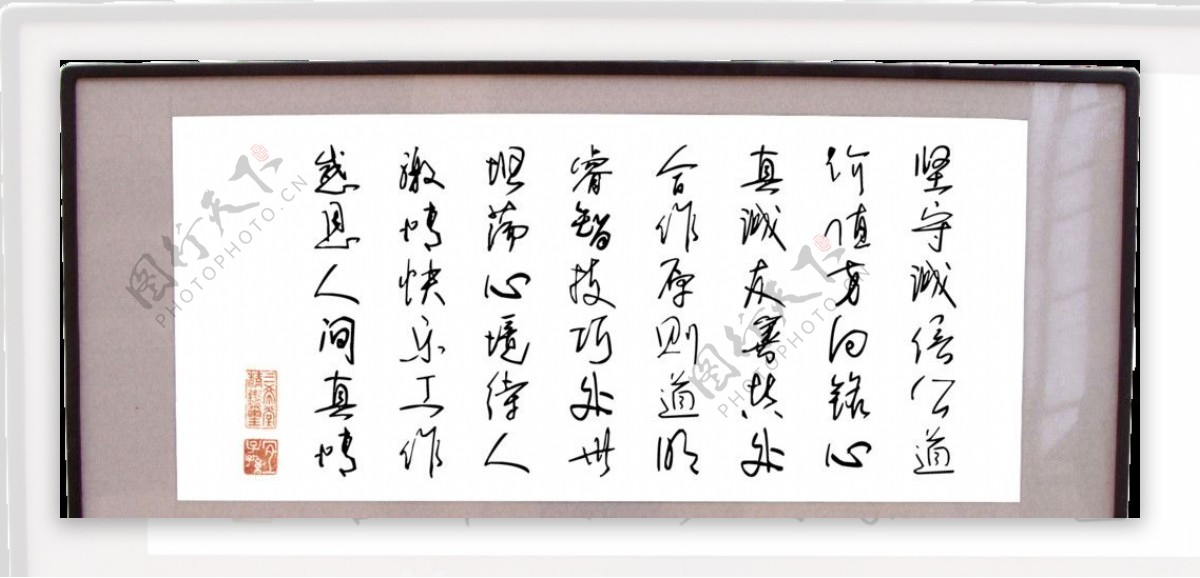 坚守诚信公道
价值方向铭心
真诚友善共处
合作原则道明
睿智技巧处世
坦荡心境待人
激情快乐工作
感恩人间真情
三希堂精鉴玺
宜子孙
图行天下
PHOTOPHOTO.CN
图行天下
PHOTOPHOTO.CN